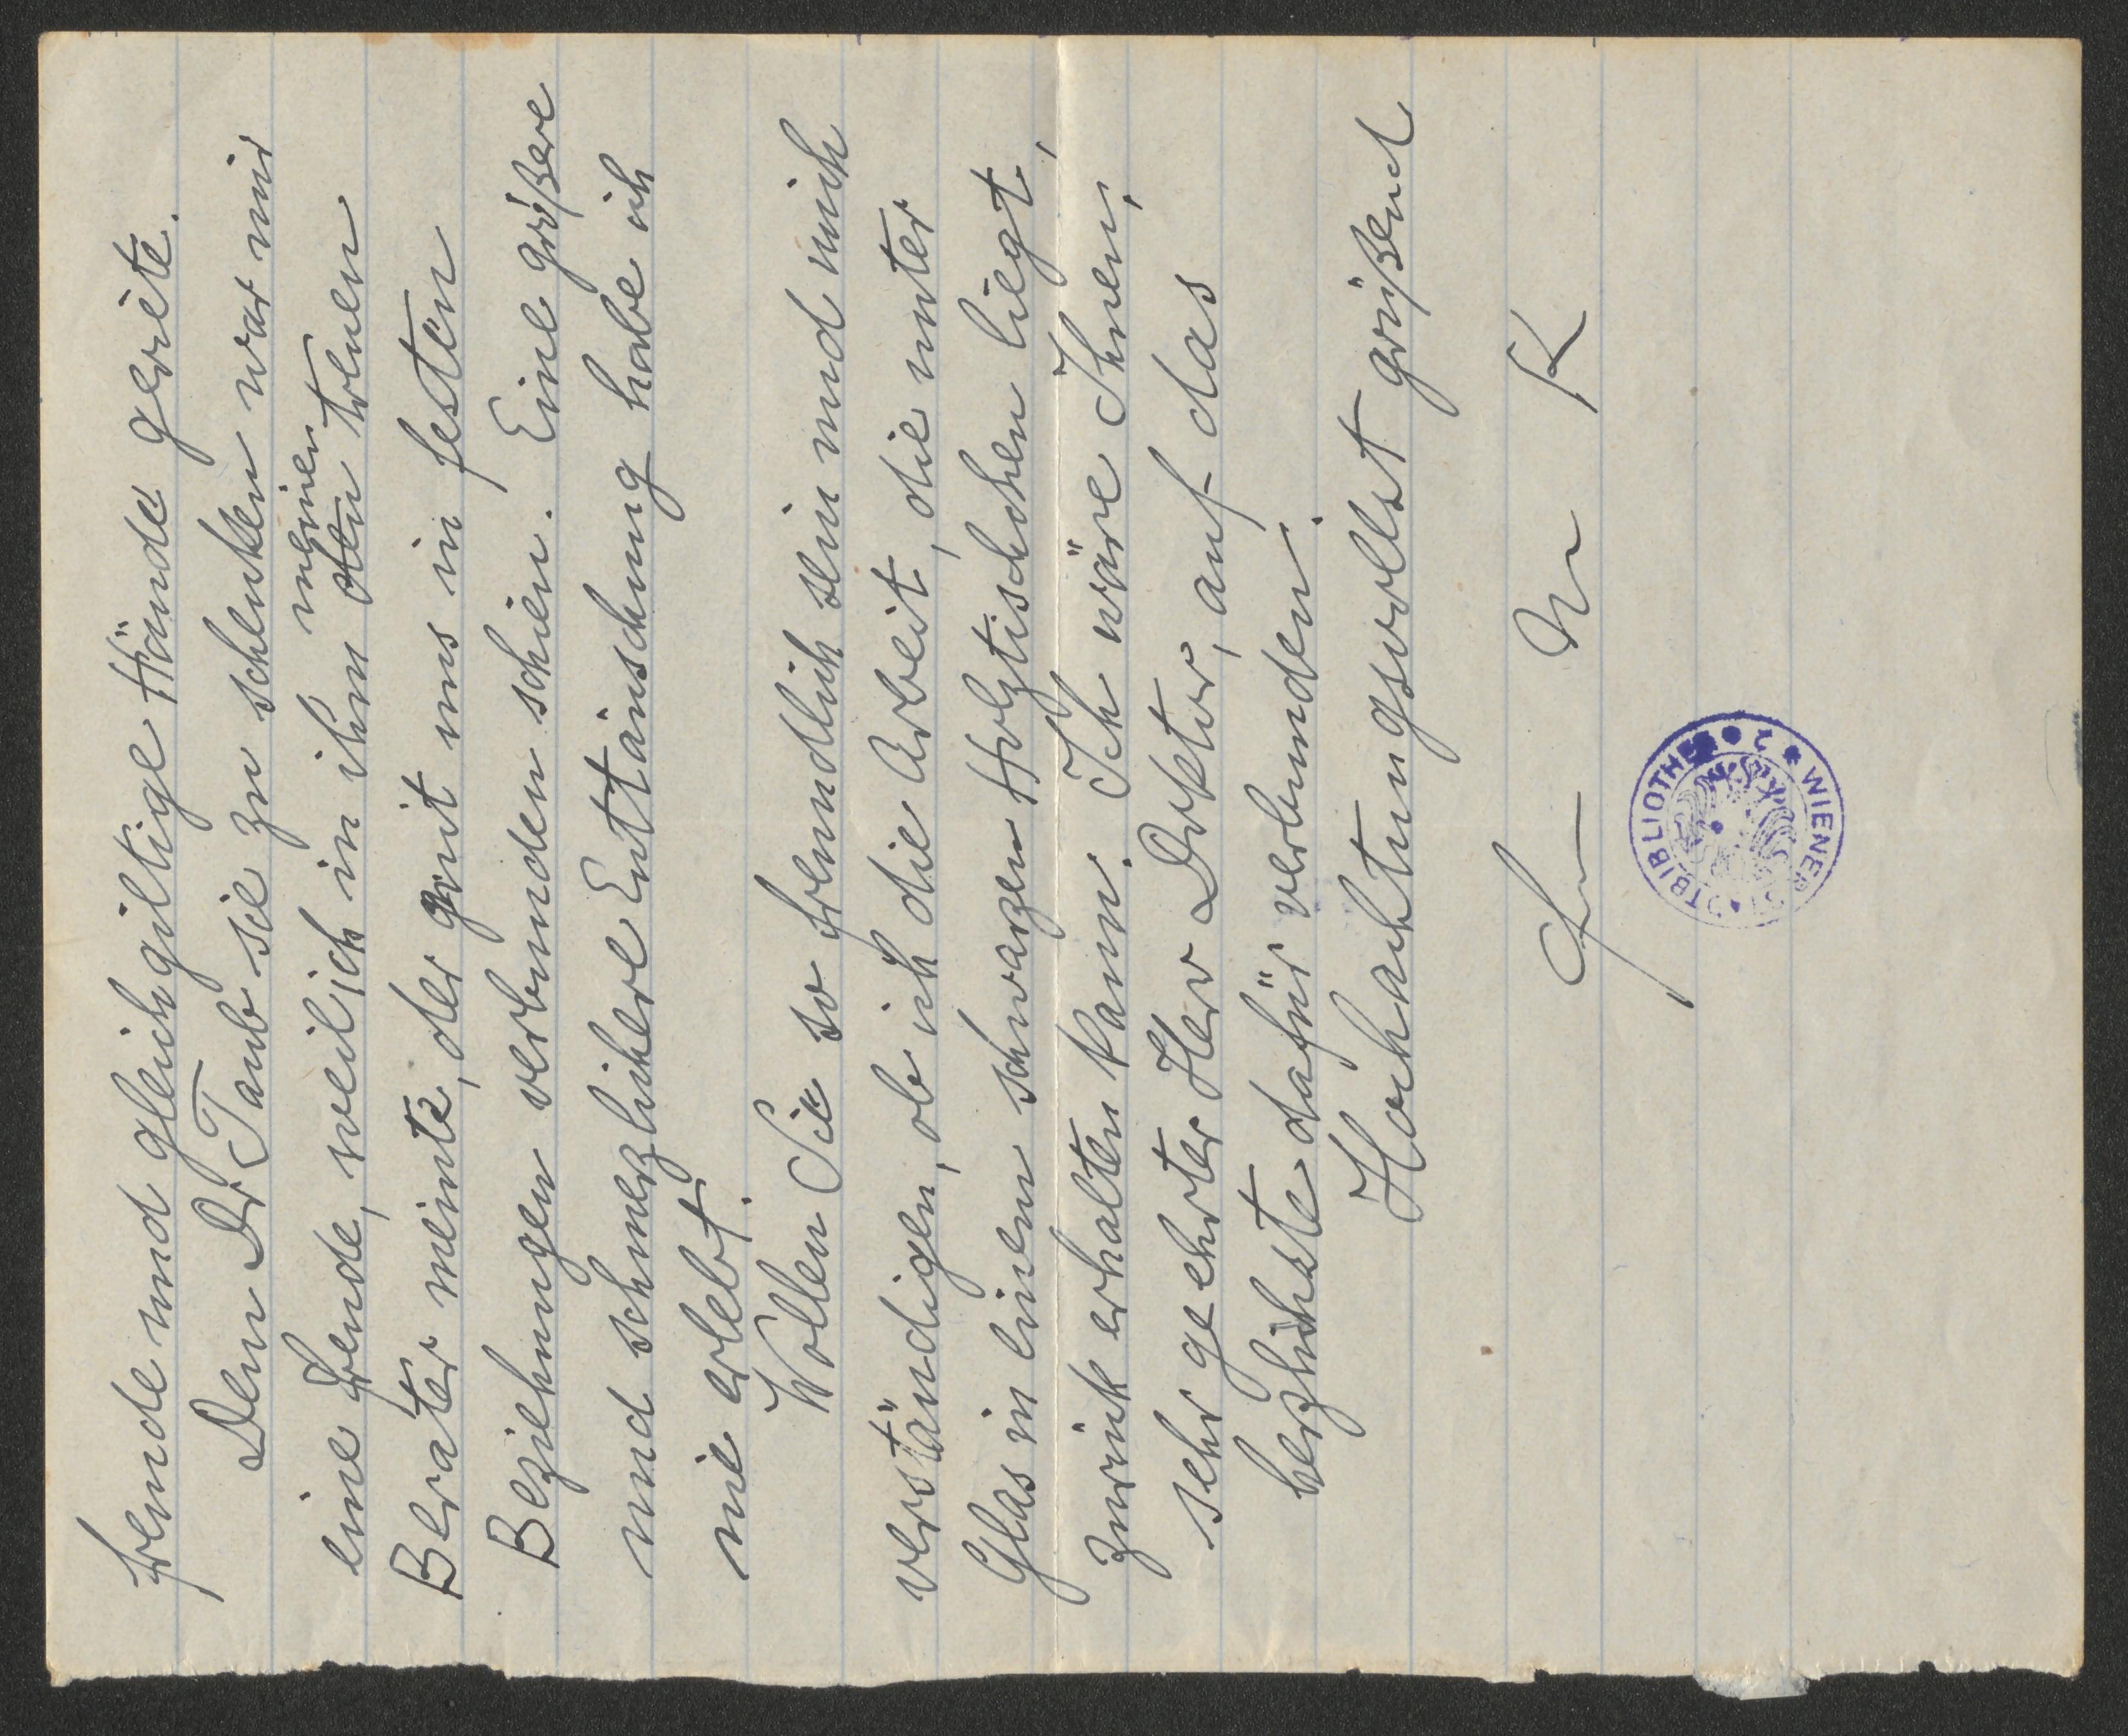 fremde und gleichgiltige Hände geriete.
Dem Dr Taub sie zu schenken war mir
meinen
eine Freude, weil ich in ihm den treuen
Berater meinte, der mit uns in festen
Beziehungen verbunden schien. Eine größere
und schmerzlichere Enttäuschung habe ich
nie erlebt.
Wollen Sie so freundlich sein und mich
verständigen, ob ich die Arbeit, die unter
Glas in einem schwarzen Holztischchen liegt,
zurück erhalten kann. Ich wäre Ihnen,
sehr geehrter Herr Doktor, auf das
herzlichste dafür verbunden.
Hochachtungsvollst grüßend
K
WIENER STADTBIBLIOTHEK